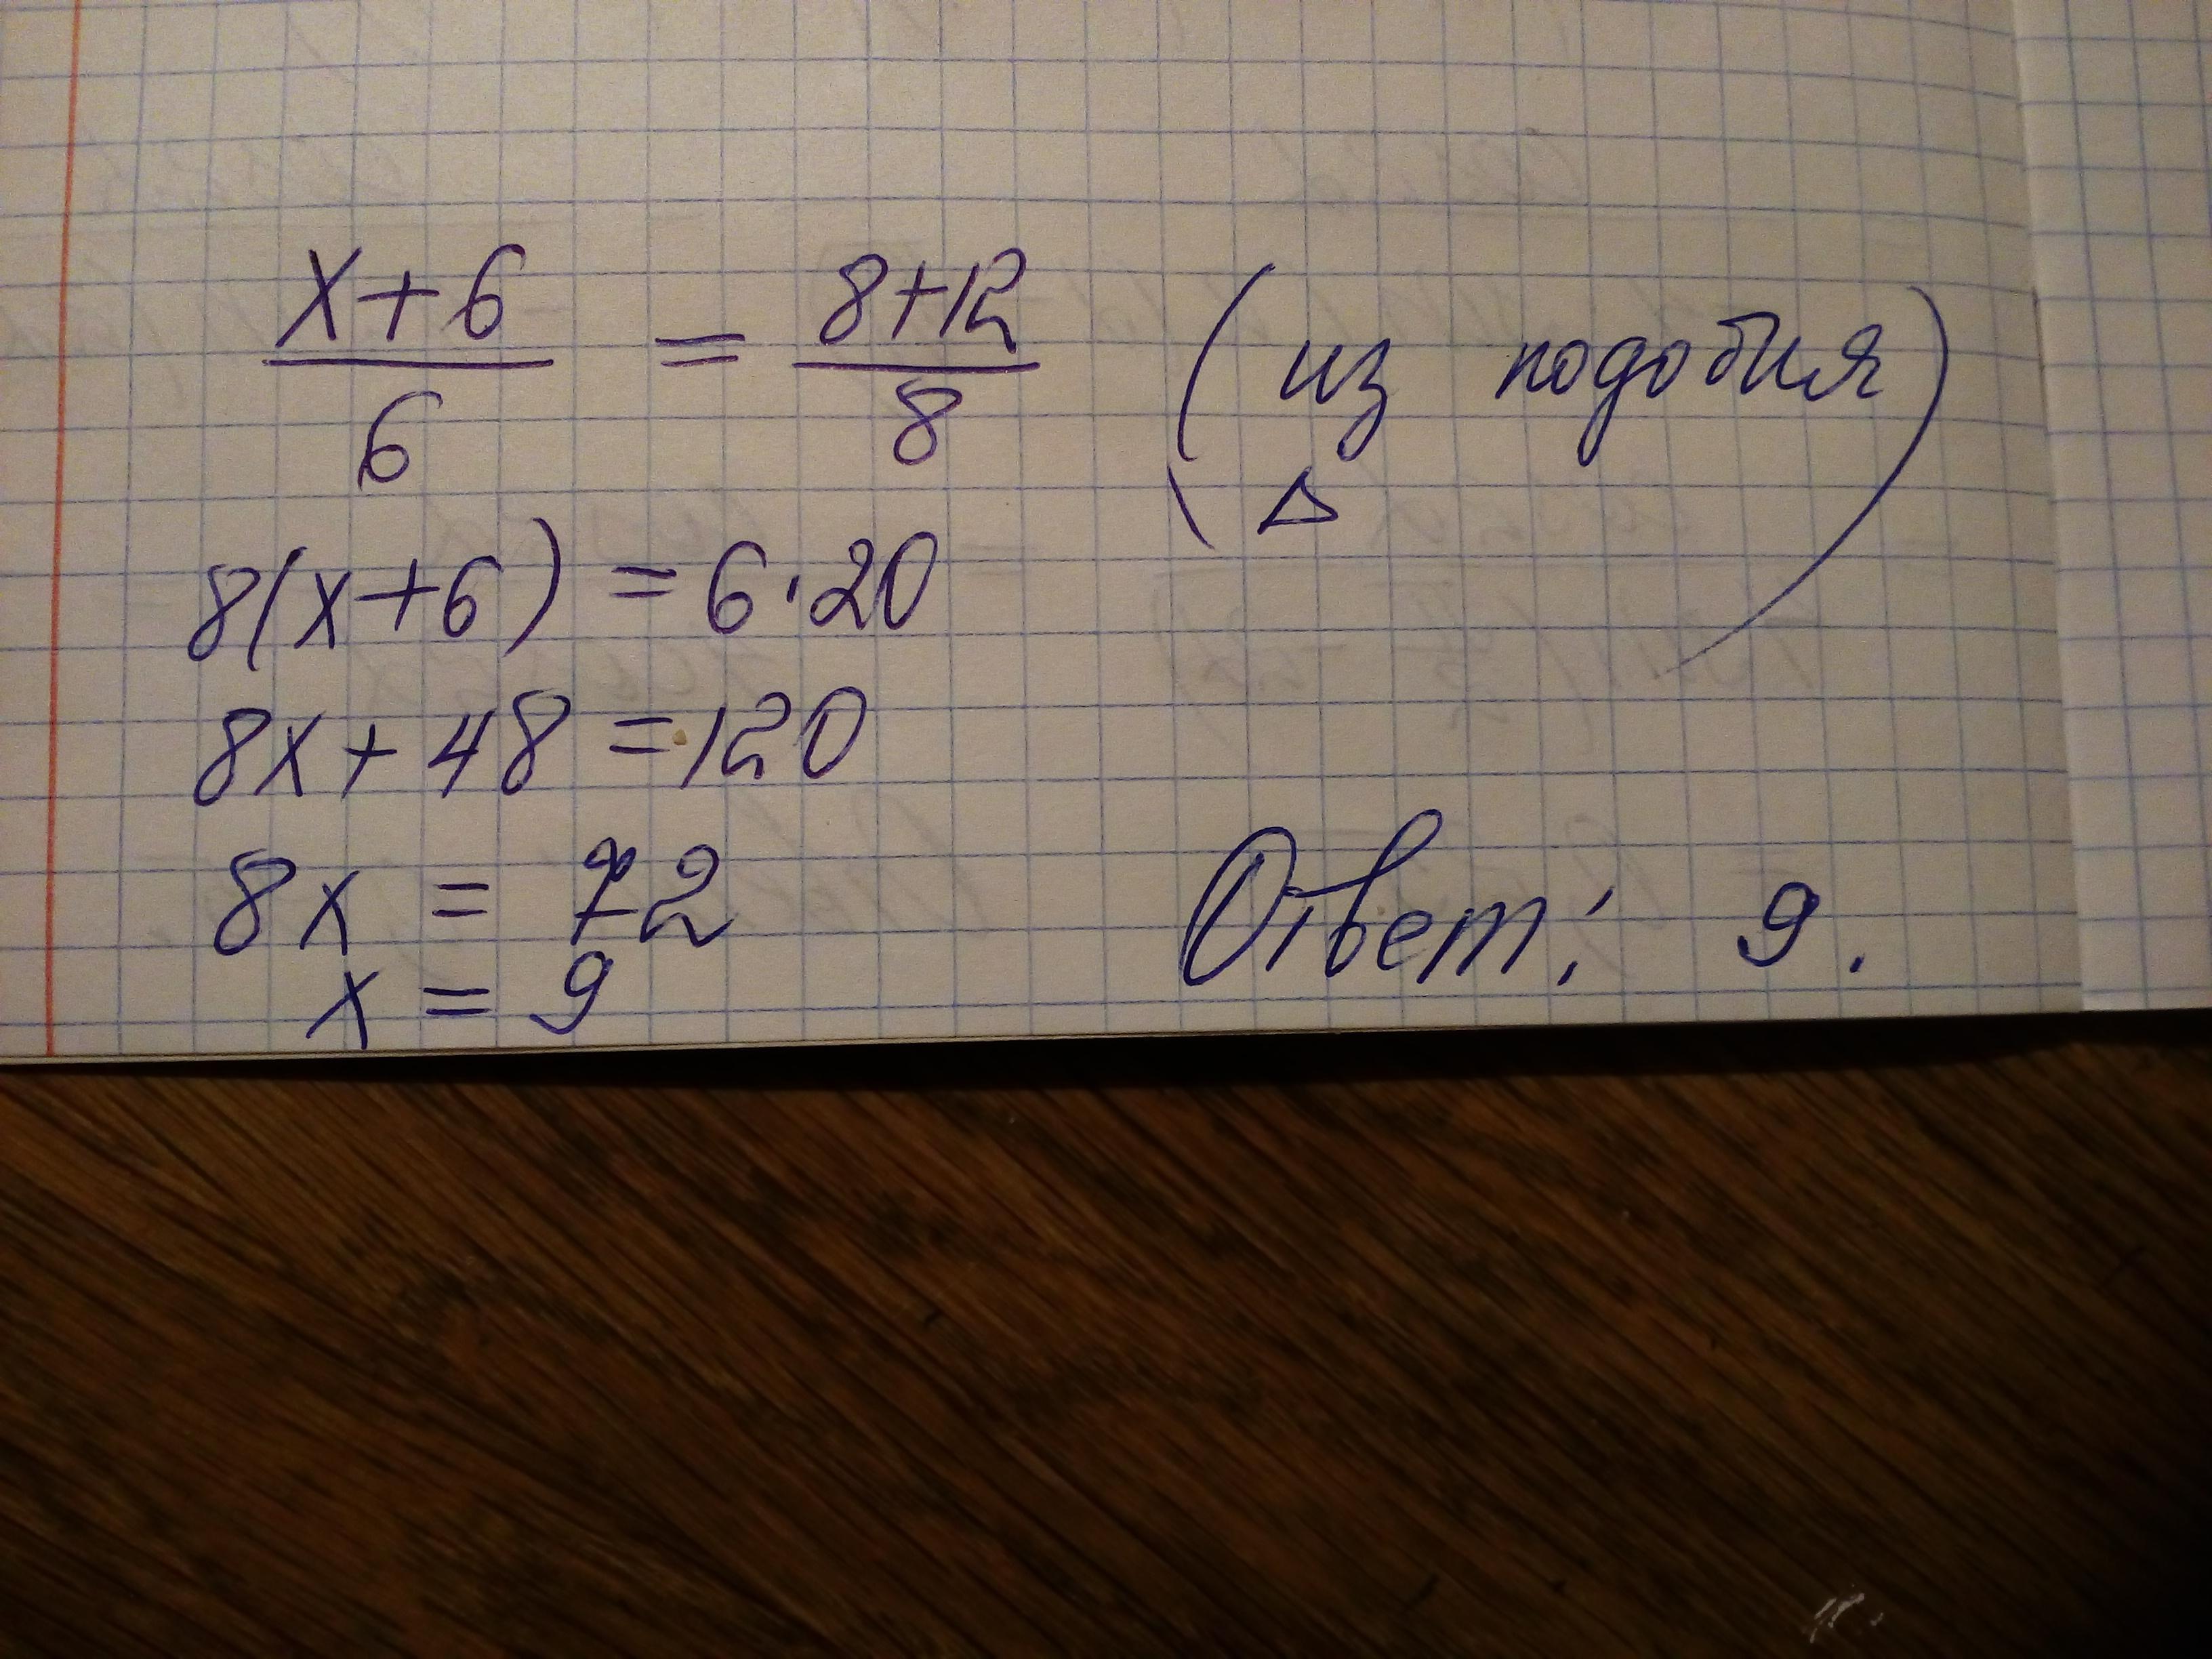 x+6 / 6 = 8+12 / 8 (из подобия
△)
8(x+6) = 6·20
8x+48=120
8x = 72
x = 9
Ответ: 9.